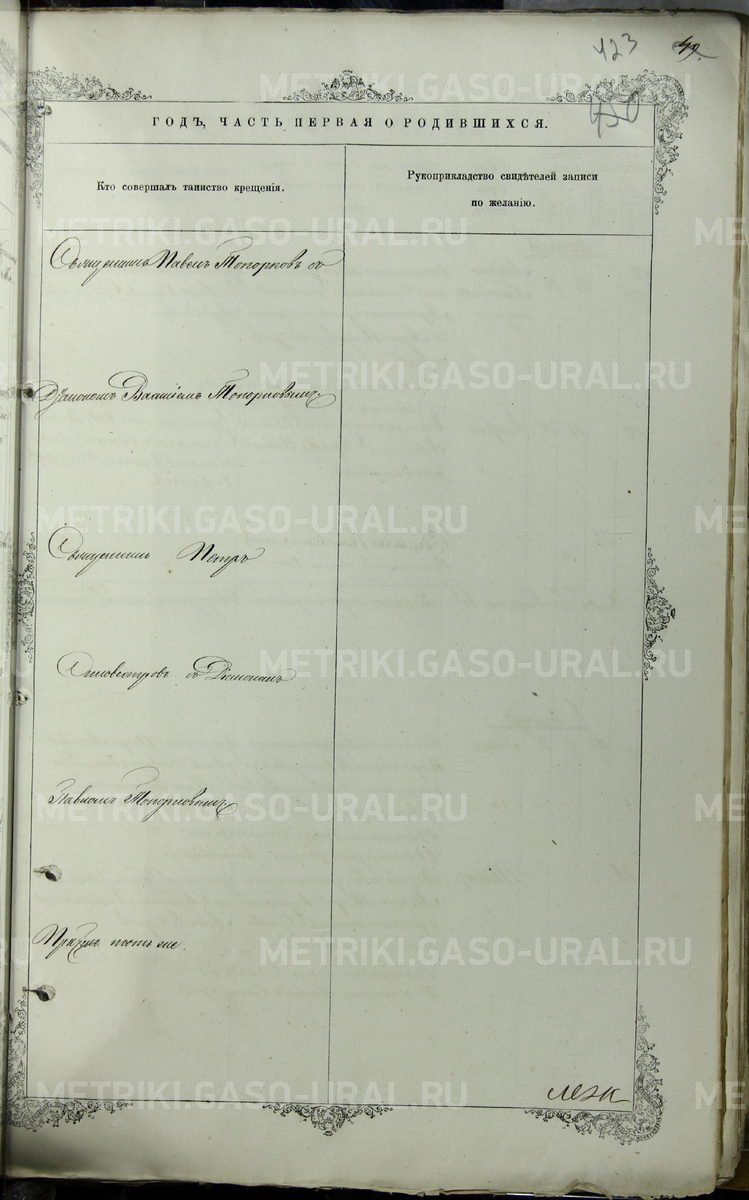 423
49.
450
ГОДЪ, ЧАСТЬ ПЕРВАЯ О РОДИВШИХСЯ.
Кто совершалъ таинство крещенія.
Рукоприкладство свидѣтелей записи
по желанію.
Священникъ Павелъ Топорковъ съ
Діакономъ Топорковымъ
Священникъ Петръ
съ Діакономъ
Павломъ Топорковымъ
METRIKI.GASO-URAL.RU
METRIKI.GASO-URAL.RU
METRIKI.GASO-URAL.RU
METRIKI.GASO-URAL.RU
METRIKI.GASO-URAL.RU
METRIKI.GASO-URAL.RU
METRIKI.GASO-URAL.RU
METRIKI.GASO-URAL.RU